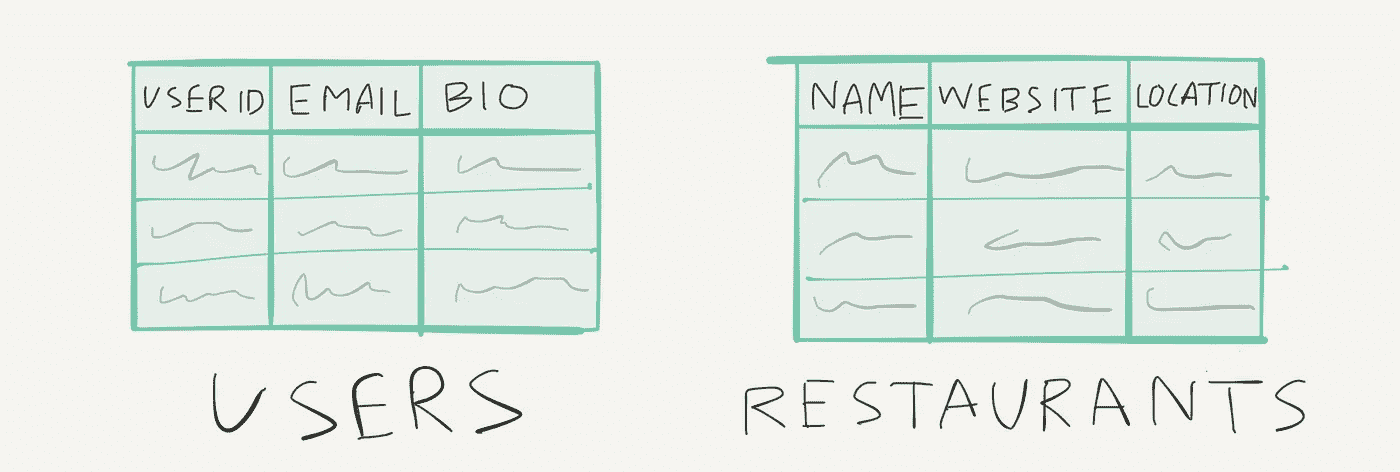 USER ID EMAIL BIO
USERS
NAME WEBSITE LOCATION
RESTAURANTS